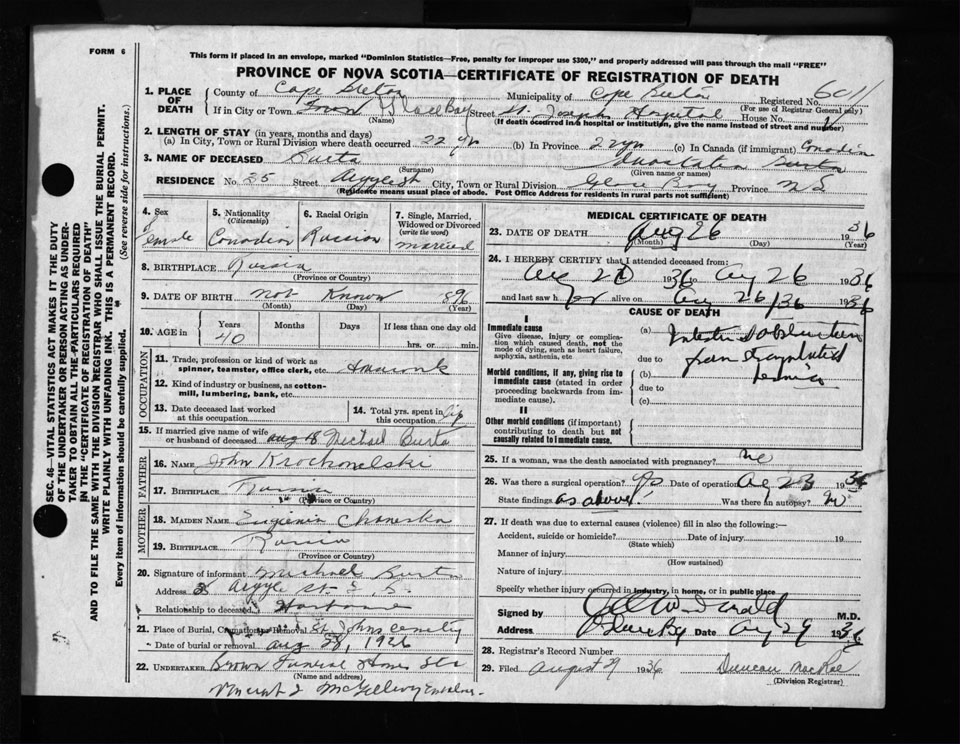 FORM 6
This form if placed in an envelope, marked "Dominion Statistics—Free, penalty for improper use $300," and properly addressed will pass through the mail "FREE"
PROVINCE OF NOVA SCOTIA—CERTIFICATE OF REGISTRATION OF DEATH
SEC. 46—VITAL STATISTICS ACT MAKES IT THE DUTY
OF THE UNDERTAKER OR PERSON ACTING AS UNDER-
TAKER TO OBTAIN ALL THE PARTICULARS REQUIRED
IN THE "CERTIFICATE OF REGISTRATION OF DEATH"
AND TO FILE THE SAME WITH THE DIVISION REGISTRAR WHO SHALL ISSUE THE BURIAL PERMIT.
WRITE PLAINLY WITH UNFADING INK. THIS IS A PERMANENT RECORD.
Every item of information should be carefully supplied. (See reverse side for instructions.)
1. PLACE OF DEATH County of Cape Breton Municipality of Cape Breton Registered No. 6011
(For use of Registrar General only)
If in City or Town Glace Bay Street St. Joseph Hospital House No.
(Name) (If death occurred in a hospital or institution, give the name instead of street and number)
2. LENGTH OF STAY (in years, months and days)
(a) In City, Town or Rural Division where death occurred 22 yr (b) In Province 22 yrs (c) In Canada (if immigrant) Canadian
3. NAME OF DECEASED Burta Burta
(Surname) (Given name or names)
RESIDENCE No. 35 Street Argyle St City, Town or Rural Division Glace Bay Province N S
(Residence means usual place of abode. Post Office Address for residents in rural parts not sufficient)
4. Sex 5. Nationality (Citizenship) 6. Racial Origin 7. Single, Married, Widowed or Divorced (write the word)
Female Canadian Russian married
8. BIRTHPLACE Russia
(Province or Country)
9. DATE OF BIRTH not Known 896
(Month) (Day) (Year)
10. AGE in Years Months Days If less than one day old
40 hrs. or min.
OCCUPATION
11. Trade, profession or kind of work as spinner, teamster, office clerk, etc. Housework
12. Kind of industry or business, as cotton-mill, lumbering, bank, etc.
13. Date deceased last worked at this occupation
14. Total yrs. spent in this occupation life
15. If married give name of wife or husband of deceased Michael Burta
FATHER
16. NAME John Krochmelski
17. BIRTHPLACE Russia
(Province or Country)
MOTHER
18. MAIDEN NAME Eugienia
19. BIRTHPLACE Russia
(Province or Country)
20. Signature of informant Michael Burta
Address Argyle St
Relationship to deceased Husband
21. Place of Burial, Cremation or Removal St Johns
Date of burial or removal Aug 28, 1926
22. UNDERTAKER Brown Funeral Home
(Name and address)
Vincent J McGillivry
MEDICAL CERTIFICATE OF DEATH
23. DATE OF DEATH Aug 26 1936
(Month) (Day) (Year)
24. I HEREBY CERTIFY that I attended deceased from:
Aug 1936 to Aug 26 1936
and last saw her alive on Aug 26/36 1936
CAUSE OF DEATH
I
Immediate cause
Give disease, injury or complication which caused death, not the mode of dying, such as heart failure, asphyxia, asthenia, etc
(a) Intestinal Obstruction
due to from
(b) hernia
Morbid conditions, if any, giving rise to immediate cause (stated in order proceeding backwards from immediate cause).
due to
(c)
II
Other morbid conditions (if important) contributing to death but not causally related to immediate cause.
25. If a woman, was the death associated with pregnancy? no
26. Was there a surgical operation? yes Date of operation Aug 23 1936
State findings as above! Was there an autopsy? no
27. If death was due to external causes (violence) fill in also the following:—
Accident, suicide or homicide? Date of injury 19
(State which)
Manner of injury
(How sustained)
Nature of injury
Specify whether injury occurred in industry, in home, or in public place
Signed by M.D.
Address Glace Bay Date Aug 29 1936
28. Registrar's Record Number
29. Filed August 29 1936 Duncan MacRae
(Division Registrar)